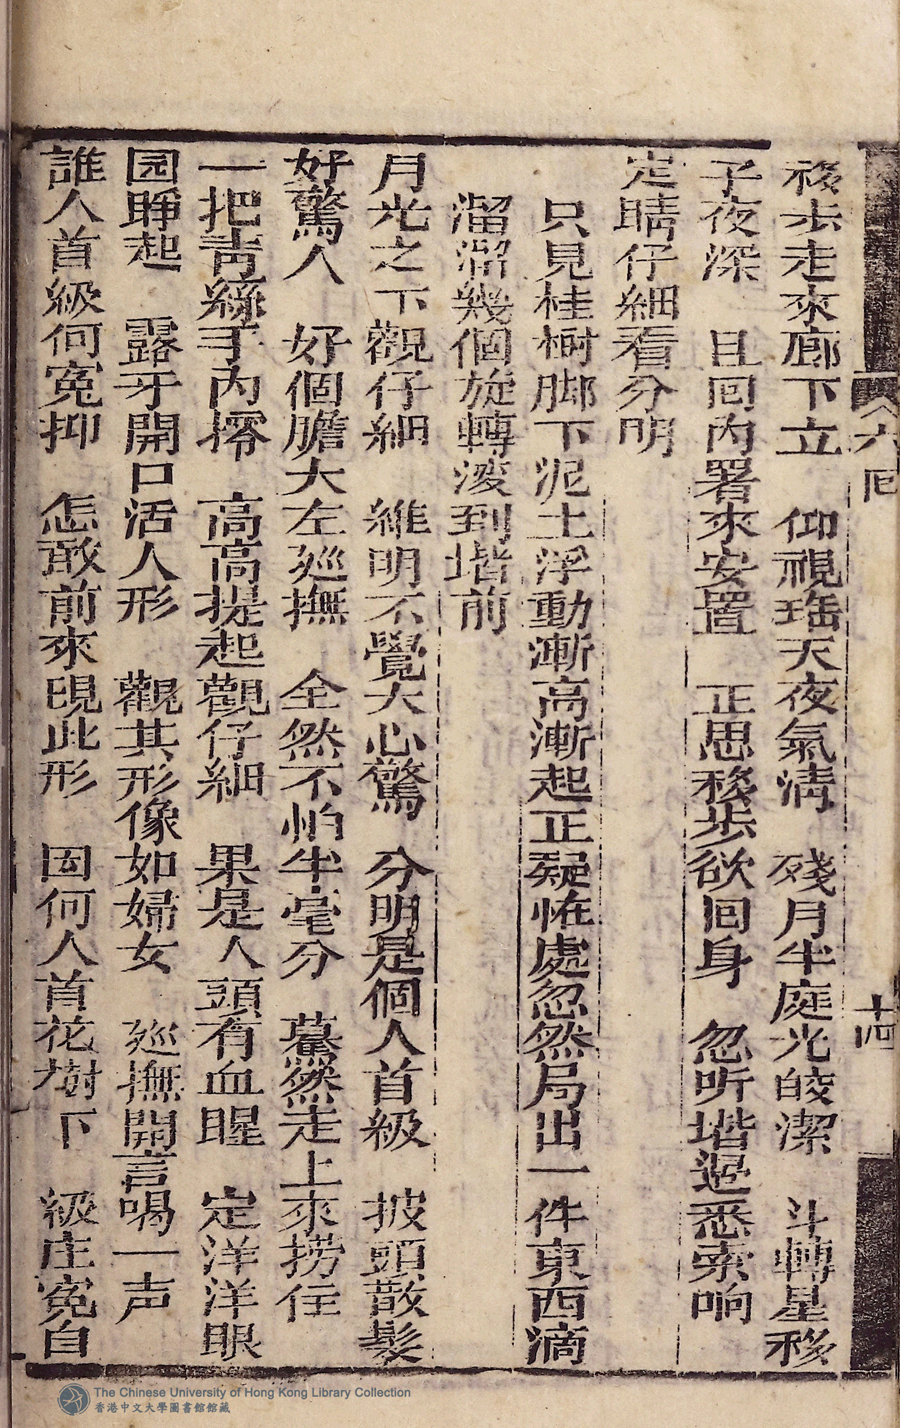 移步走來廊下立　仰視瑤天夜氣清　殘月半庭光皎潔　斗轉星移
子夜深　且回內署來安置　正思移步欲回身　忽听堦邊悉索响
定睛仔細看分明
只見桂樹脚下泥土浮動漸高漸起正疑怪處忽然局出一件東西滴
溜溜幾個旋轉滾到堦前
月光之下觀仔細　維明不覺大心驚　分明是個人首級　披頭散髮
好驚人　好個膽大左廵撫　全然不怕半毫分　驀然走上來撈住
一把青絲手內擰　高高提起觀仔細　果是人頭有血腥　定洋洋眼
园睜起　露牙開口活人形　觀其形像如婦女　廵撫開言喝一声
誰人首級何冤抑　怎敢前來現此形　因何人首花樹下　級庄冤自
六囘
十四
The Chinese University of Hong Kong Library Collection
香港中文大學圖書館館藏